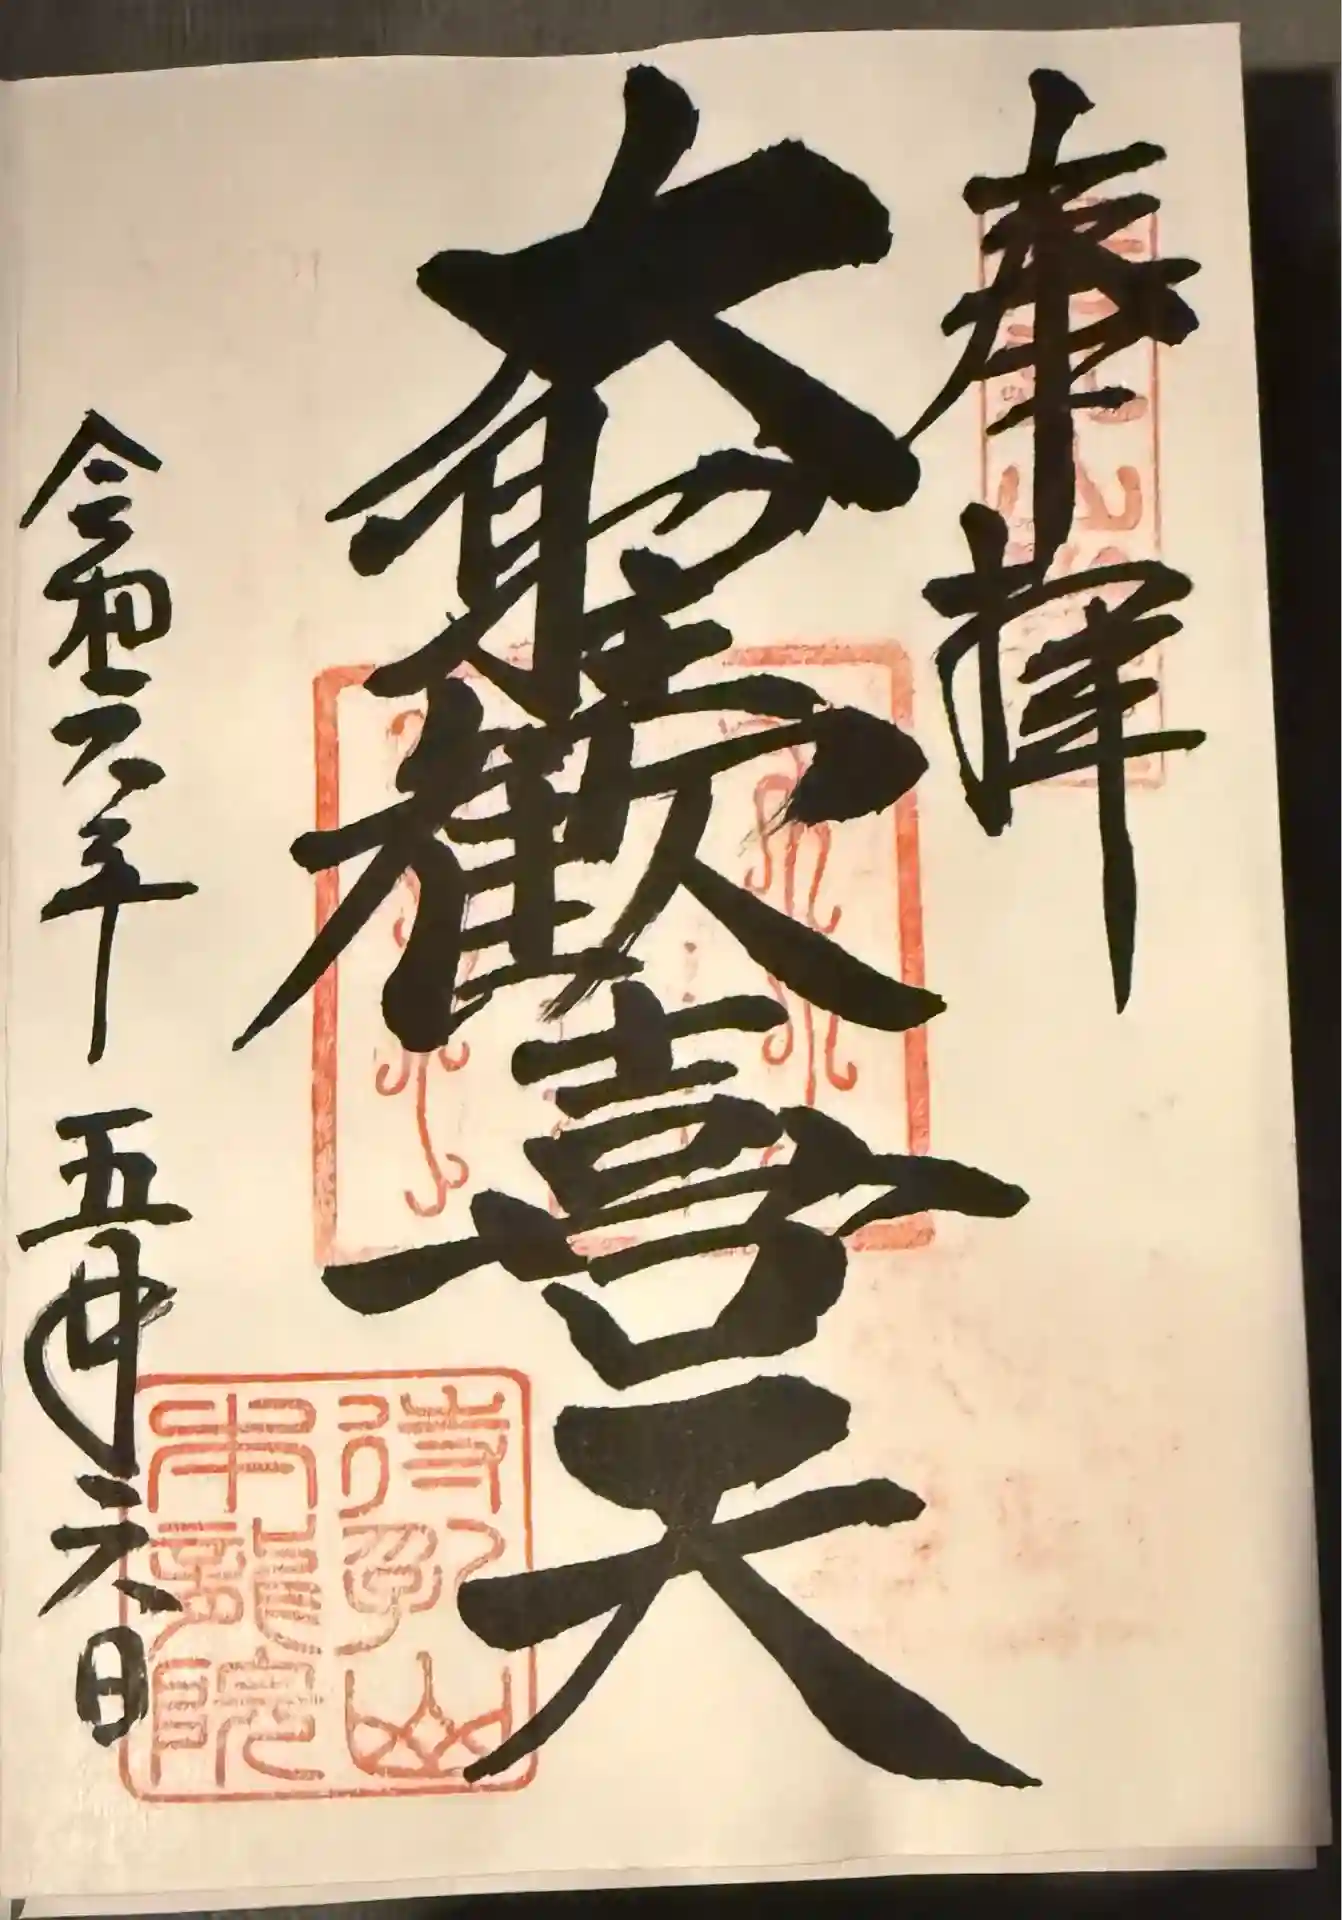 奉拝
大聖歓喜天
令和六年 五月 六日
待乳山
本龍院